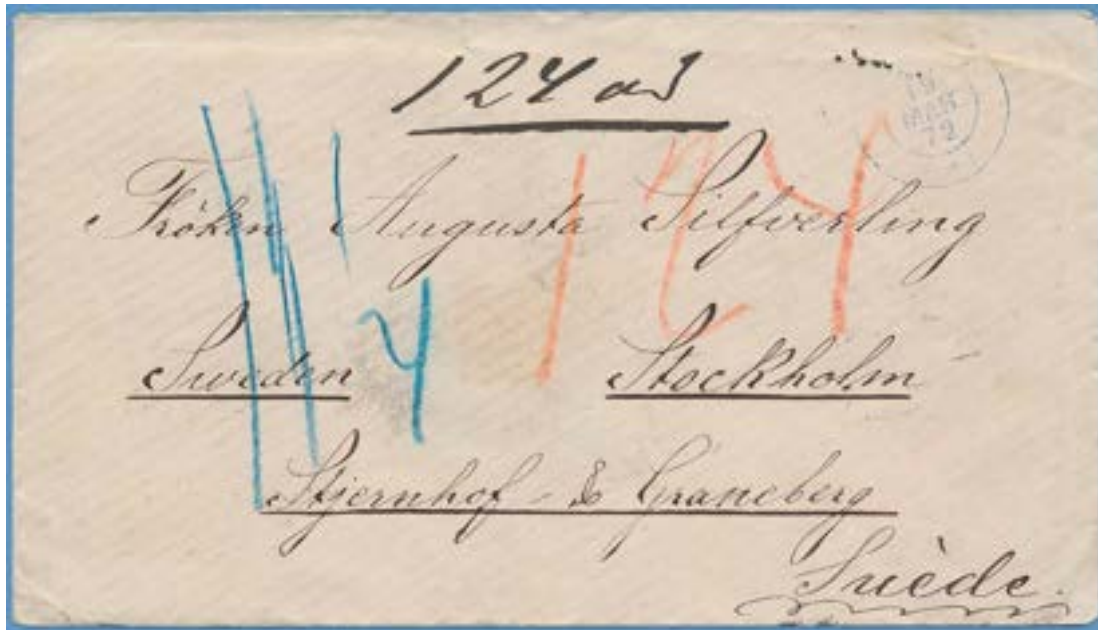 124 
19
MAR
72
124
Fröken Augusta Silfverling
4
Sweden Stockholm
Stjernhof & Graneberg
Suède.